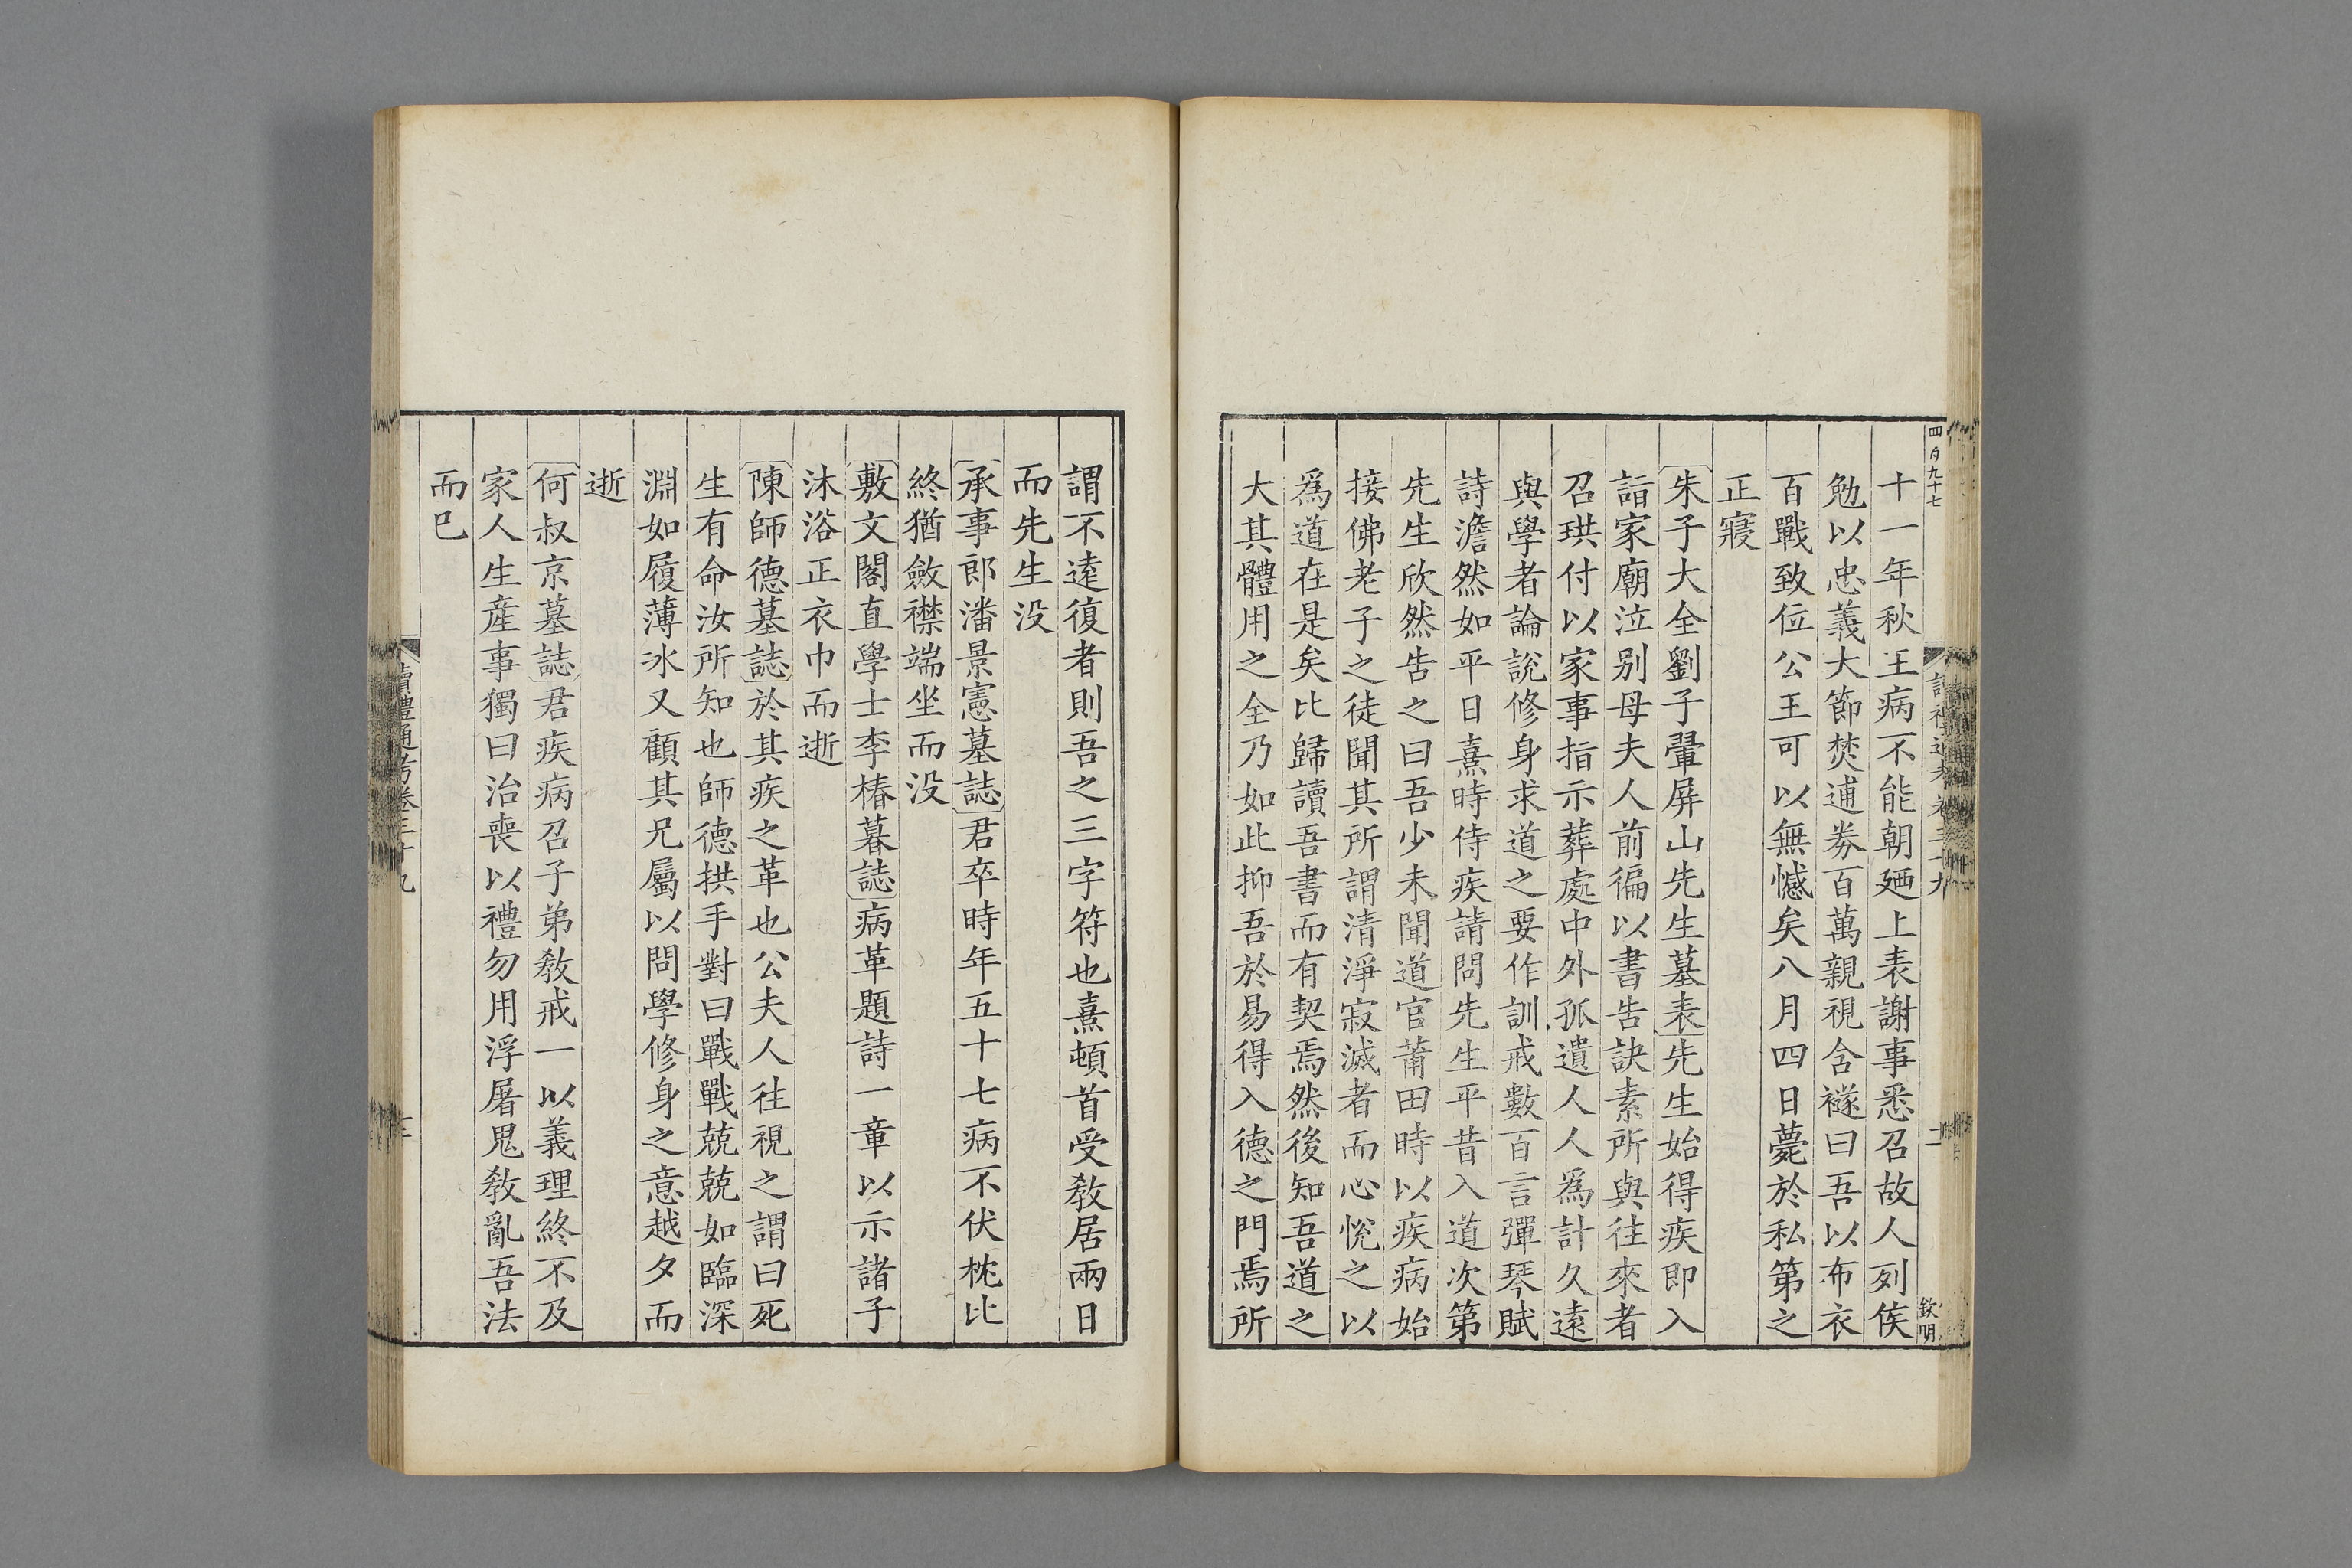 四百九十七
十一年秋王病不能朝廼上表謝事悉召故人列侯
勉以忠義大節焚逋券百萬親視含襚曰吾以布衣
百戰致位公王可以無憾矣八月四日薨於私第之
正寢
朱子大全劉子翬屏山先生墓表先生始得疾即入
詣家廟泣别母夫人前徧以書告訣素所與往來者
召珙付以家事指示葬處中外孤遺人人為計久遠
與學者論說修身求道之要作訓戒數百言彈琴賦
詩澹然如平日熹時侍疾請問先生平昔入道次第
先生欣然告之曰吾少未聞道官莆田時以疾病始
接佛老子之徒聞其所謂清淨寂滅者而心悅之以
為道在是矣比歸讀吾書而有契焉然後知吾道之
大其體用之全乃如此抑吾於易得入德之門焉所
讀禮通考卷三十九
十一
欽明
謂不遠復者則吾之三字符也熹頓首受教居兩日
而先生没
承事郎潘景憲墓誌君卒時年五十七病不伏枕比
終猶斂襟端坐而没
敷文閣直學士李椿墓誌病革題詩一章以示諸子
沐浴正衣巾而逝
陳師德墓誌於其疾之革也公夫人往視之謂曰死
生有命汝所知也師德拱手對曰戰戰兢兢如臨深
淵如履薄冰又顧其兄屬以問學修身之意越夕而
逝
何叔京墓誌君疾病召子弟教戒一以義理終不及
家人生産事獨曰治喪以禮勿用浮屠鬼教亂吾法
而已
讀禮通考卷三十九